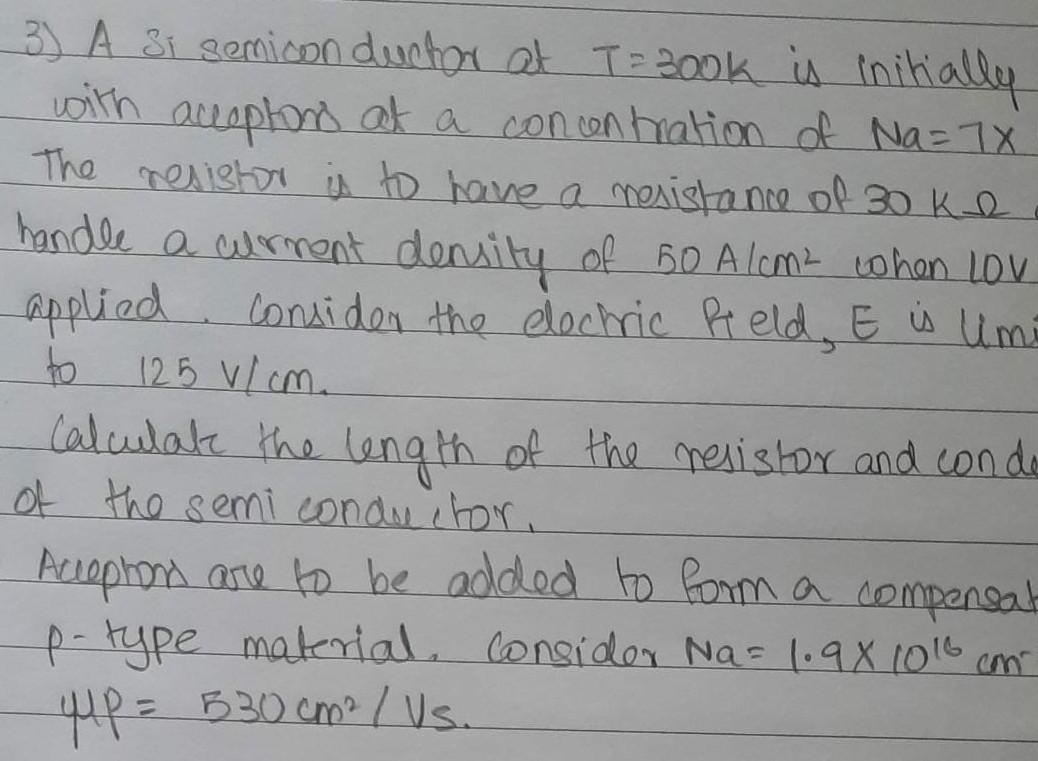 3) A Si semiconductor at T=300K is initially
with acceptors at a concentration of Na=7x
The resistor is to have a resistance of 30 KΩ
handle a current density of 50 A/cm² when 10V
applied. Consider the electric field, E is limi
to 125 V/cm.
Calculate the length of the resistor and condu
of the semiconductor.
Acceptors are to be added to form a compensat
p-type material. Consider Na= 1.9x10¹⁶ cm⁻
μp= 530 cm²/Vs.